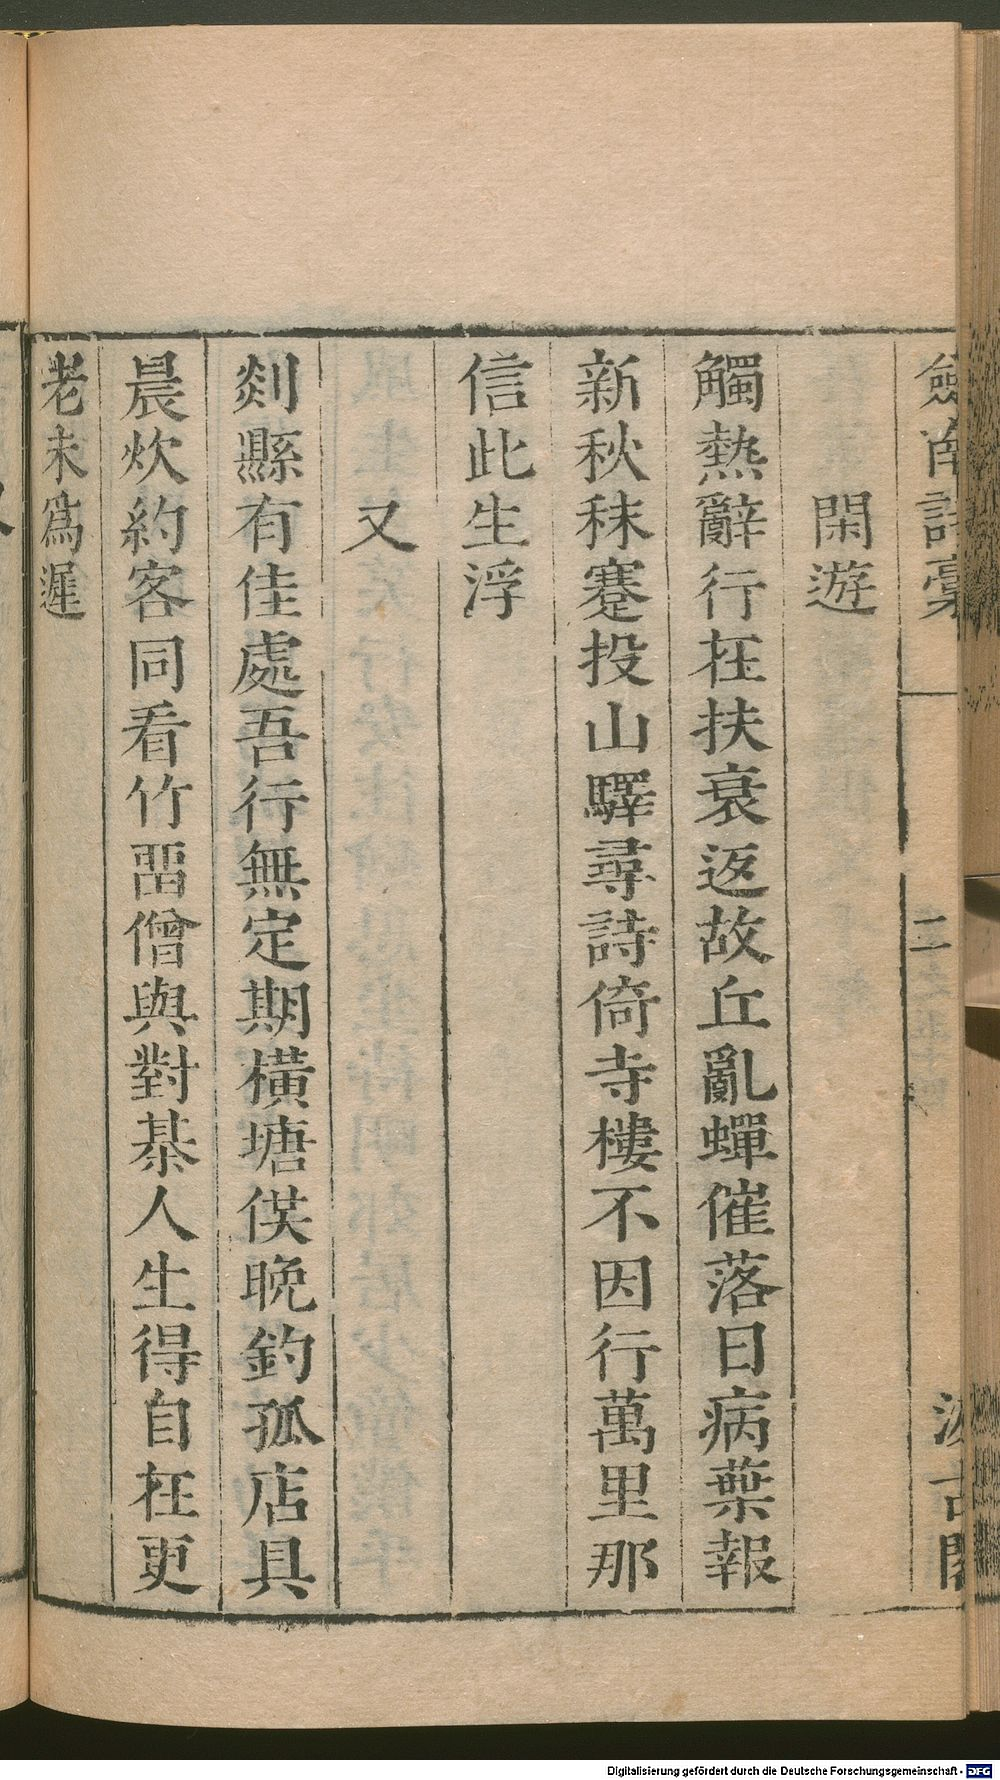 劍南詩稾 二 汲古閣
閑遊
觸熱辭行在扶衰返故丘亂蟬催落日病葉報
新秋秣蹇投山驛尋詩倚寺樓不因行萬里那
信此生浮
又
剡縣有佳處吾行無定期橫塘俟晚釣孤店具
晨炊約客同看竹畱僧與對棊人生得自在更
老未爲遲
Digitalisierung gefördert durch die Deutsche Forschungsgemeinschaft - DFG